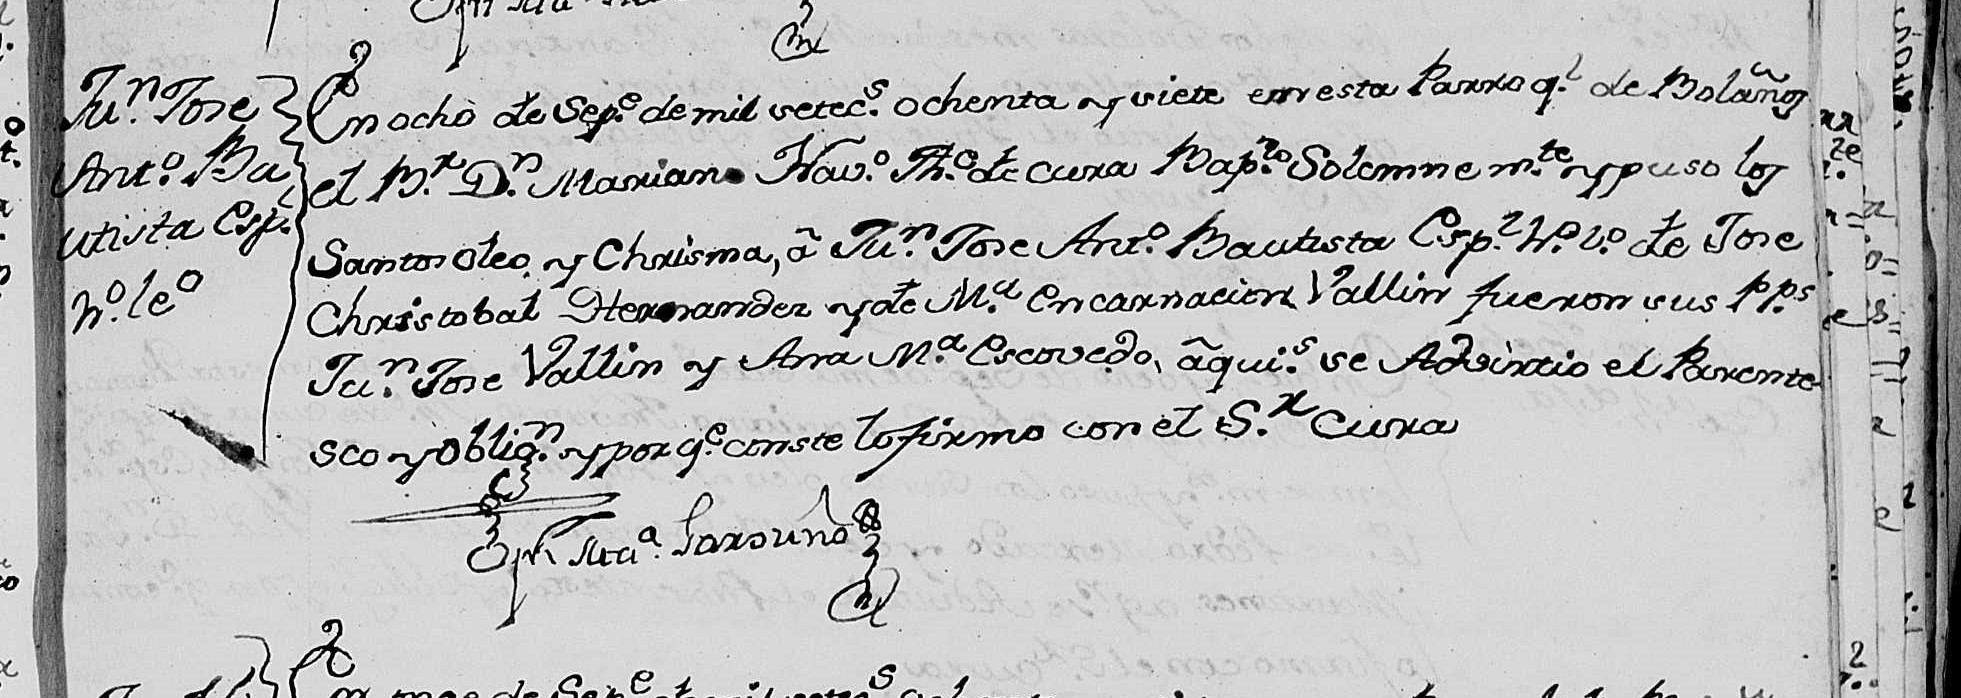 Ju.n Jose
Ant.o Bau
utista Esp.l
h.o le.o
En ocho de Sep.e de mil setec.s ochenta y siete en esta Parroq.l de Bolaños
el B.r D.n Mariano Nav.o Th.e de cura Bap.zo Solemnem.te y puso los
Santos oleo, y Chrisma, â Ju.n Jose Ant.o Bautista Esp.l h.o l.o de Jose
Christobal Hernandez y de M.a Encarnacion Vallin fueron sus Pps
Ju.n Jose Vallin y Ana M.a Escovedo, âqui.s se Advirtio el Parente
sco y oblig.n y por q.e conste lo firmo con el S.r Cura